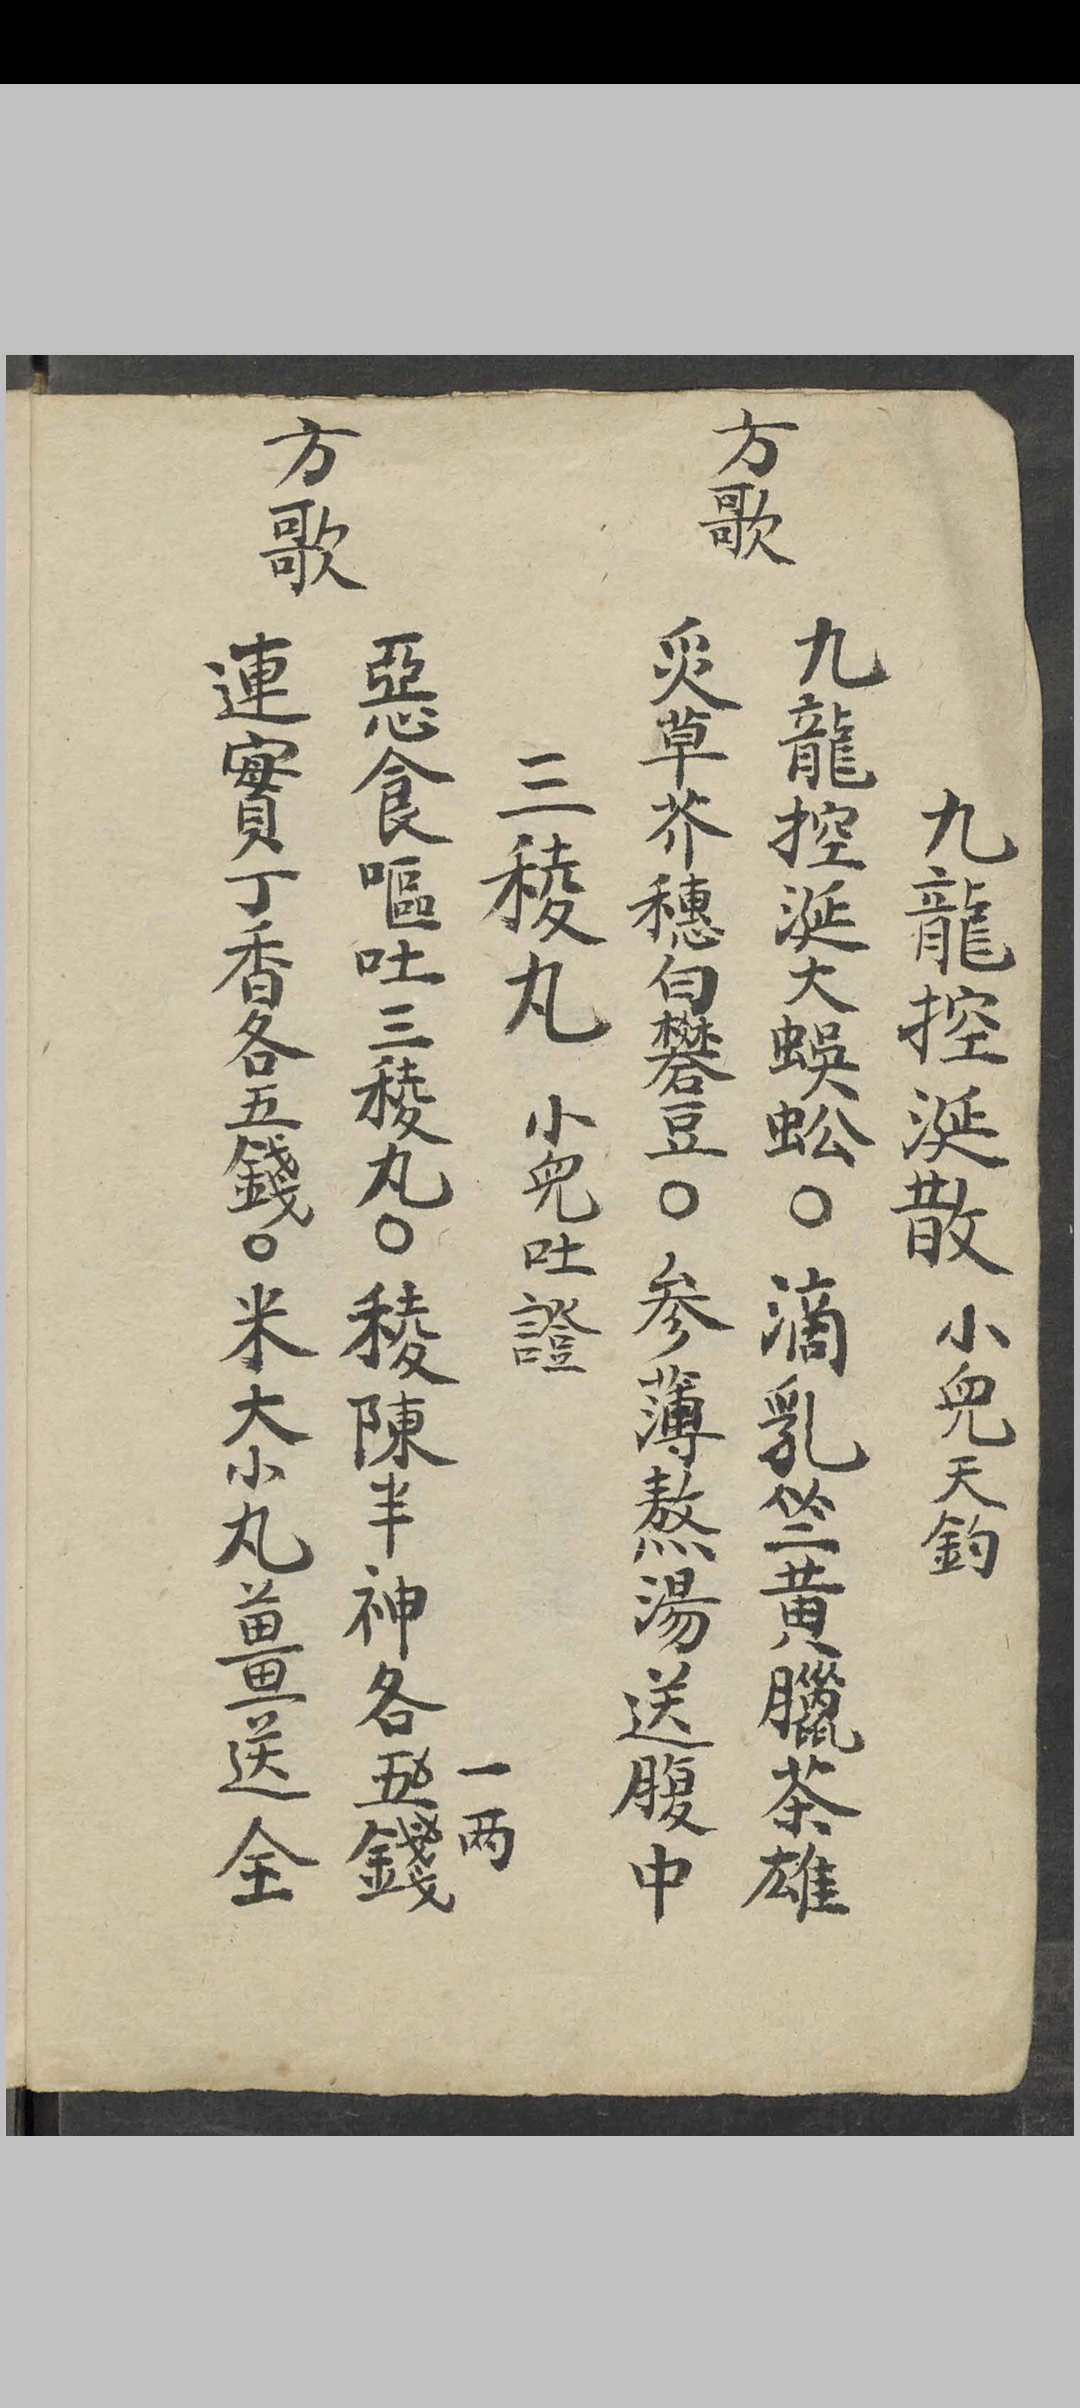 九龍控涎散 小兒天鈞
方歌
九龍控涎大蜈蚣〇滴乳竺黃臘茶雄
炙草芥穗白礬豆〇參薄熬湯送腹中
三稜丸 小兒吐證
方歌
惡食嘔吐三稜丸〇稜陳半神各五錢
一两
連實丁香各五錢〇米大小丸薑送全